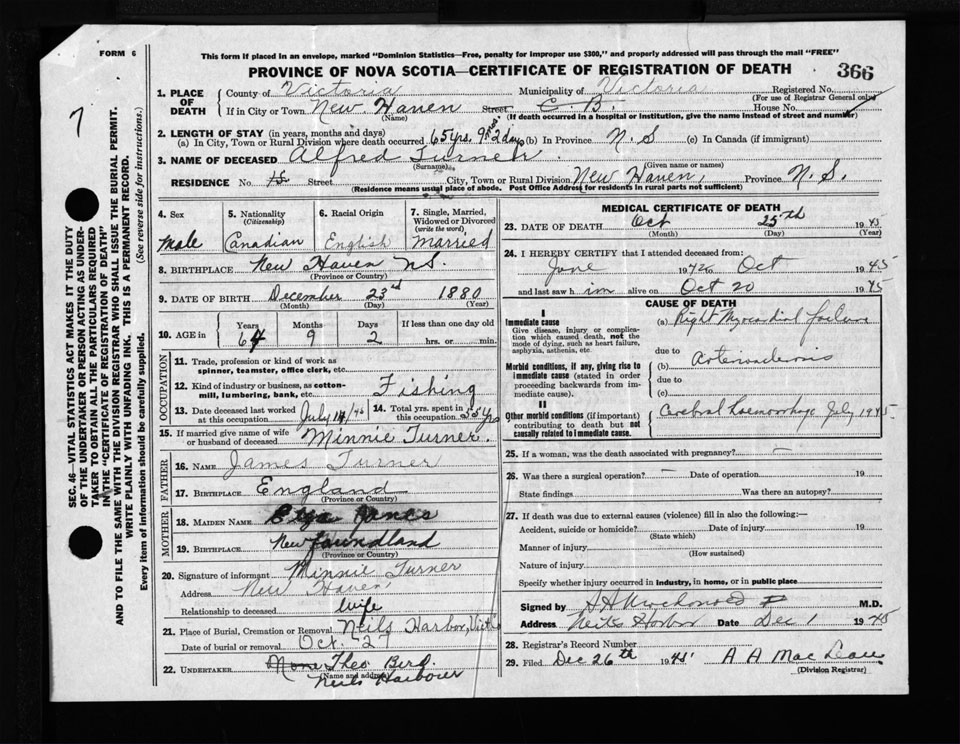 FORM 6
This form if placed in an envelope, marked "Dominion Statistics—Free, penalty for improper use $300," and properly addressed will pass through the mail "FREE"
PROVINCE OF NOVA SCOTIA—CERTIFICATE OF REGISTRATION OF DEATH
366
7
SEC. 46—VITAL STATISTICS ACT MAKES IT THE DUTY OF THE UNDERTAKER OR PERSON ACTING AS UNDERTAKER TO OBTAIN ALL THE PARTICULARS REQUIRED IN THE "CERTIFICATE OF REGISTRATION OF DEATH"
AND TO FILE THE SAME WITH THE DIVISION REGISTRAR WHO SHALL ISSUE THE BURIAL PERMIT.
WRITE PLAINLY WITH UNFADING INK. THIS IS A PERMANENT RECORD.
Every item of information should be carefully supplied. (See reverse side for instructions.)
1. PLACE OF DEATH County of Victoria Municipality of Victoria Registered No.
(For use of Registrar General only)
If in City or Town New Haven Street C. B. House No.
(Name) (If death occurred in a hospital or institution, give the name instead of street and number)
2. LENGTH OF STAY (in years, months and days)
(a) In City, Town or Rural Division where death occurred 65 yrs. 9 mos. 2 days (b) In Province N. S (c) In Canada (if immigrant)
3. NAME OF DECEASED Alfred Turner
(Surname) (Given name or names)
RESIDENCE No. Street City, Town or Rural Division New Haven, Province N. S.
(Residence means usual place of abode. Post Office Address for residents in rural parts not sufficient)
4. Sex Male
5. Nationality (Citizenship) Canadian
6. Racial Origin English
7. Single, Married, Widowed or Divorced (write the word) Married
8. BIRTHPLACE New Haven N.S.
(Province or Country)
9. DATE OF BIRTH December 23rd 1880
(Month) (Day) (Year)
10. AGE in Years 64 Months 9 Days 2 If less than one day old hrs. or min.
OCCUPATION
11. Trade, profession or kind of work as spinner, teamster, office clerk, etc.
12. Kind of industry or business, as cotton-mill, lumbering, bank, etc. Fishing
13. Date deceased last worked at this occupation July 14/45 14. Total yrs. spent in this occupation 55 yrs
15. If married give name of wife or husband of deceased Minnie Turner.
FATHER
16. NAME James Turner
17. BIRTHPLACE England
(Province or Country)
MOTHER
18. MAIDEN NAME Jones
19. BIRTHPLACE Newfoundland
(Province or Country)
20. Signature of informant Minnie Turner
Address New Haven
Relationship to deceased Wife
21. Place of Burial, Cremation or Removal Neils Harbor, Vict
Date of burial or removal Oct. 27
22. UNDERTAKER None Theo Bird.
(Name and address) Neils Harbour
MEDICAL CERTIFICATE OF DEATH
23. DATE OF DEATH Oct 25th 1945
(Month) (Day) (Year)
24. I HEREBY CERTIFY that I attended deceased from:
June 1942 to Oct 1945
and last saw him alive on Oct 20 1945
CAUSE OF DEATH
I
Immediate cause
Give disease, injury or complication which caused death, not the mode of dying, such as heart failure, asphyxia, asthenia, etc.
(a) Right Myocardial failure
due to
Morbid conditions, if any, giving rise to immediate cause (stated in order proceeding backwards from immediate cause).
(b) Arteriosclerosis
due to
(c)
II
Other morbid conditions (if important) contributing to death but not causally related to immediate cause.
Cerebral haemorrhage July 1945
25. If a woman, was the death associated with pregnancy? —
26. Was there a surgical operation? — Date of operation 19
State findings Was there an autopsy?
27. If death was due to external causes (violence) fill in also the following:—
Accident, suicide or homicide? Date of injury 19
(State which)
Manner of injury
(How sustained)
Nature of injury
Specify whether injury occurred in industry, in home, or in public place
Signed by M.D.
Address Neils Harbor Date Dec 1 1945
28. Registrar's Record Number
29. Filed Dec 26th 1945 A A Mac
(Division Registrar)